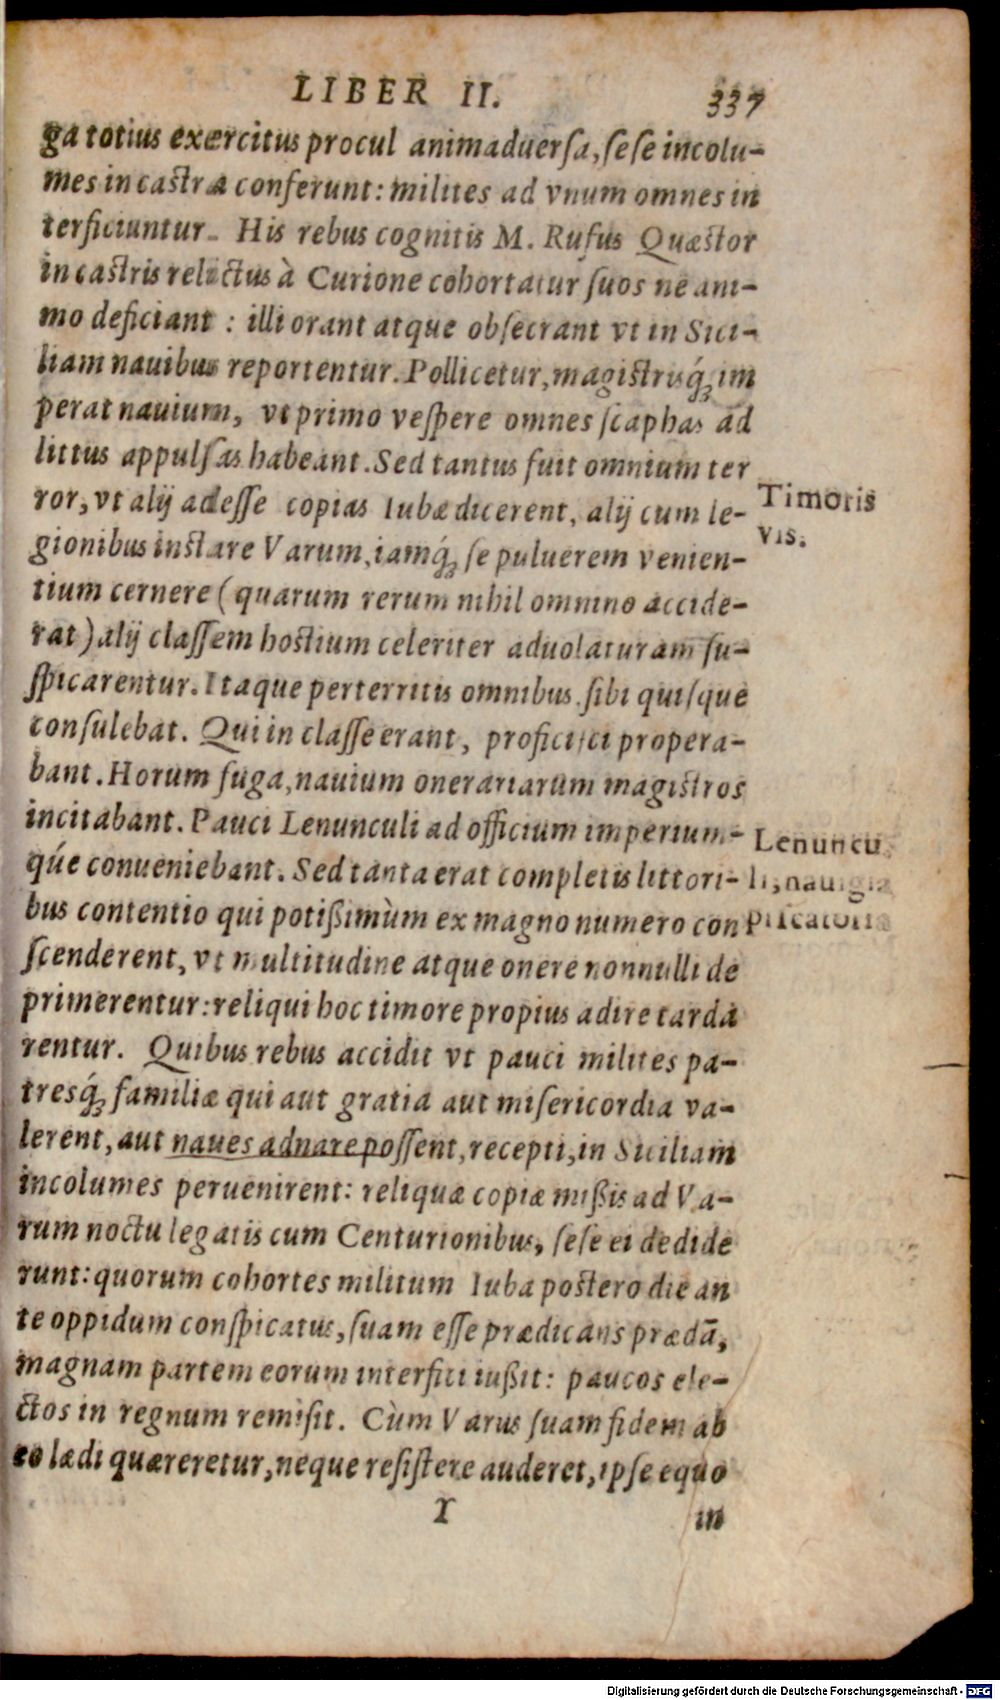 LIBER II. 337
ga totius exercitus procul animaduersa, sese incolu-
mes in castra conferunt: milites ad vnum omnes in
terficiuntur. His rebus cognitis M. Rufus Quæstor
in castris relictus à Curione cohortatur suos ne ani-
mo deficiant : illi orant atque obsecrant vt in Sici-
liam nauibus reportentur. Pollicetur, magistrisq́ꝫ im
perat nauium, vt primo vespere omnes scaphas ad
littus appulsas habeant. Sed tantus fuit omnium ter
ror, vt alij adesse copias Iubæ dicerent, alij cum le-
Timoris
vis.
gionibus instare Varum, iamq́ꝫ se puluerem venien-
tium cernere (quarum rerum nihil omnino accide-
rat) alij classem hostium celeriter aduolaturam su-
spicarentur. Itaque perterritis omnibus. sibi quisque
consulebat. Qui in classe erant, proficisci propera-
bant. Horum fuga, nauium onerariarum magistros
incitabant. Pauci Lenunculi ad officium imperium-
qúe conueniebant. Sed tanta erat completis littori-
Lenuncu
li, nauigia
piscatoria
bus contentio qui potißimùm ex magno numero con
scenderent, vt multitudine atque onere nonnulli de
primerentur: reliqui hoc timore propius adire tarda
rentur. Quibus rebus accidit vt pauci milites pa-
tresq́ꝫ familiæ qui aut gratia aut misericordia va-
lerent, aut naues adnare possent, recepti, in Siciliam
incolumes peruenirent: reliquæ copiæ mißis ad Va-
rum noctu legatis cum Centurionibus, sese ei dedide
runt: quorum cohortes militum Iuba postero die an
te oppidum conspicatus, suam esse prædicans prædā,
magnam partem eorum interfici iußit: paucos ele-
ctos in regnum remisit. Cùm Varus suam fidem ab
eo lædi quæreretur, neque resistere auderet, ipse equo
Y in
Digitalisierung gefördert durch die Deutsche Forschungsgemeinschaft - DFG